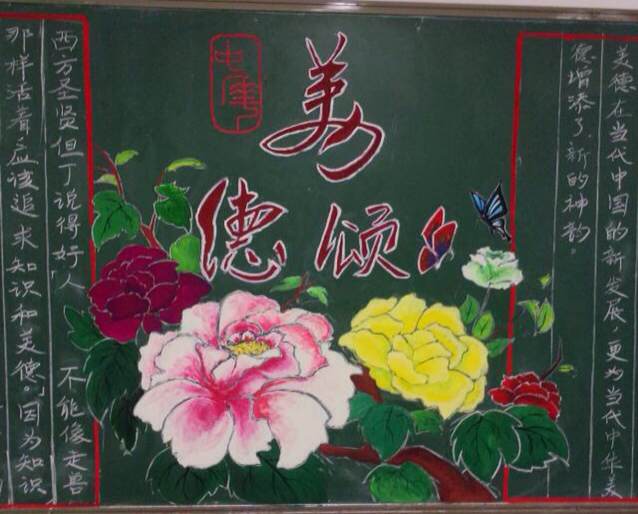 美德在当代中国的新发展,更为当代中华美
德增添了新的神韵。
美
德颂
西方圣贤但丁说得好“人不能像走兽
那样活着应该追求知识和美德。”因为知识